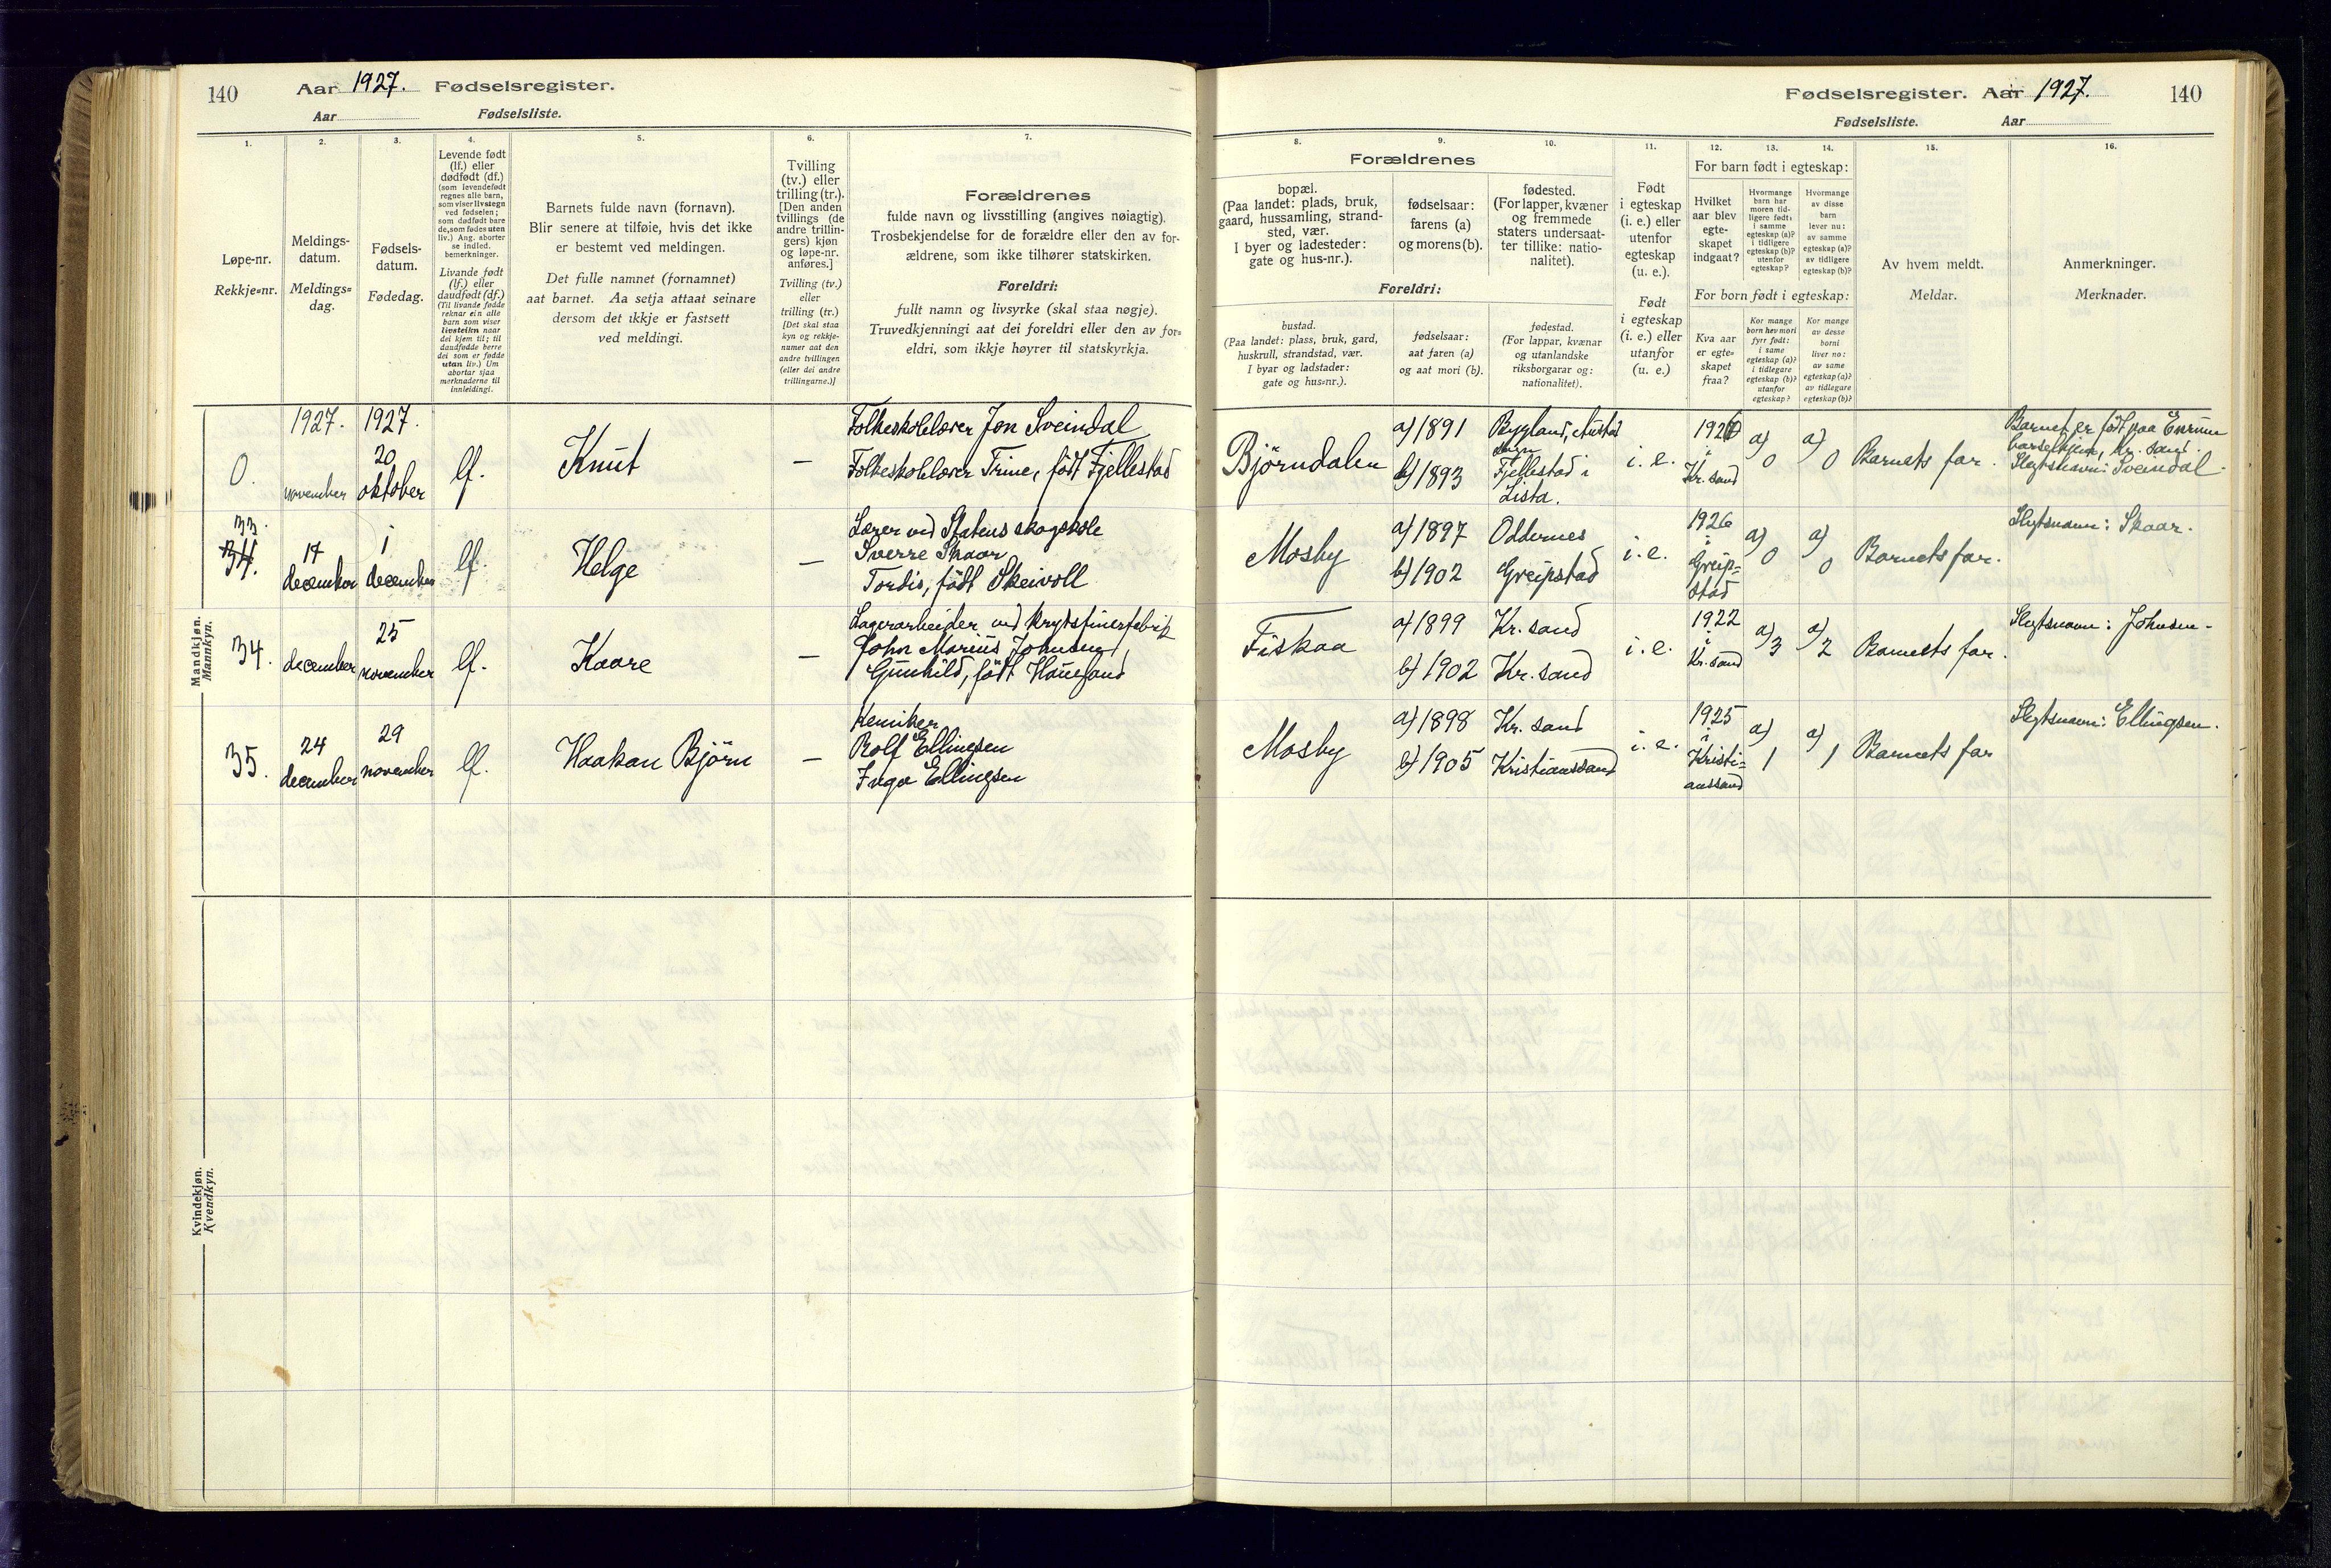 140 Aar 1927. Fødselsregister.
Aar Fødselsliste.
1. 2. 3. 4. 5. 6. 7.
Løpe-nr.
Rekkje=nr.
Meldings-
datum.
Meldings=
dag.
Fødsels-
datum.
Fødedag.
Levende født
(lf.) eller
dødfødt (df.)
(som levendefødt
regnes alle barn,
som viser livstegn
ved fødselen;
som dødfødt bare
de, som fødes uten
liv.) Ang. aborter
se indled.
bemerkninger.
Livande født
(lf.) eller
daudfødt (df.)
(Til livande fødde
reknar ein alle
barn som viser
livsteikn naar
dei kjem til; til
daudfødde berre
dei som er fødde
utan liv.) Um
abortar sjaa
merknaderne til
innleidingi.
Barnets fulde navn (fornavn).
Blir senere at tilføie, hvis det ikke
er bestemt ved meldingen.
Det fulle namnet (fornamnet)
aat barnet. Aa setja attaat seinare
dersom det ikkje er fastsett
ved meldingi.
Tvilling
(tv.) eller
trilling (tr.).
[Den anden
tvillings (de
andre trillin-
gers) kjøn
og løpe-nr.
anføres.]
Tvilling (tv.)
eller
trilling (tr.)
[Det skal staa
kyn og rekkje-
numer aat den
andre tvillingen
(eller dei andre
trillingarne.)]
Forældrenes
fulde navn og livsstilling (angives nøiagtig).
Trosbekjendelse for de forældre eller den av for-
ældrene, som ikke tilhører statskirken.
Foreldri:
fullt namn og livsyrke (skal staa nøgje).
Truvedkjenningi aat dei foreldri eller den av for=
eldri, som ikkje høyrer til statskyrkja.
Mandkjøn.
Mannkyn.
1927. 1927.
0. november 20 oktober lf. Knut —
Folkeskolelærer Jon Sveindal
Folkeskolelærer Trine, født Fjellestad
33.
34. 17 december 1 december lf. Helge —
Lærer ved Statens skogskole
Sverre Skaar
Tordis, født Skeivoll
34. december 25 november lf. Kaare —
Lagerarbeider ved krysfinerfabrik
John Marius Johnsen
Gunhild, født
35. 24 december 29 november lf. Haakan Björn —
Kemiker
Rolf Ellingsen
Inga Ellingsen
Kvindekjøn.
Kvendkyn.
Fødselsregister. Aar 1927. 140
Fødselsliste. Aar
8. 9. 10. 11. 12. 13. 14. 15. 16.
Forældrenes
bopæl.
(Paa landet: plads, bruk,
gaard, hussamling, strand-
sted, vær.
I byer og ladesteder:
gate og hus-nr.).
fødselsaar:
farens (a)
og morens (b).
fødested.
(For lapper, kvæner
og fremmede
staters undersaat-
ter tillike: natio-
nalitet).
Foreldri:
bustad.
(Paa landet: plass, bruk, gard,
huskrull, strandstad, vær.
I byar og ladstader:
gate og hus=nr.).
fødselsaar:
aat faren (a)
og aat mori (b).
fødestad.
(For lappar, kvænar
og utanlandske
riksborgarar og:
nationalitet).
Født
i egteskap
(i. e.) eller
utenfor
egteskap
(u. e.).
Født
i egteskap
(i. e.) eller
utanfor
(u. e.)
For barn født i egteskap:
Hvilket
aar blev
egte-
skapet
indgaat?
Hvormange
barn har
moren tid-
ligere født:
i samme
egteskap (a)?
i tidligere
egteskap (b)?
utenfor
egteskap?
Hvormange
av disse
barn
lever nu:
av samme
egteskap (a)?
av tidligere
egteskap (b)?
For born født i egteskap:
Kva aar
er egte=
skapet
fraa?
Kor mange
born hev mori
fyrr født:
i same
egteskap (a)?
i tidlegare
egteskap (b)?
utanfor
egteskap?
Kor mange
av desse
borni
liver no:
av same
egteskap (a)?
av tidlegare
egteskap (b)?
Av hvem meldt.
Meldar.
Anmerkninger.
Merknader.
Björndalen a) 1891 Bygland,
b) 1893 Fjellestad i
Lista.
i. e. 1926 i Kr. sand a) 0 a) 0 Barnets far.
Barnet er født paa
Kr. sand.
Slegtsnavn: Sveindal.
Mosby a) 1897 Oddernes
b) 1902 Greipstad
i. e. 1926 i Greip-
stad a) 0 a) 0 Barnets far. Slegtsnavn: Skaar.
Fiskaa a) 1899 Kr. sand
b) 1902 Kr. sand
i. e. 1922 i Kr. sand a) 3 a) 2 Barnets far. Slegtsnavn: Johnsen.
Mosby a) 1898 Kr. sand
b) 1905 Kristianssand
i. e. 1925 i Kristi-
anssand a) 1 a) 1 Barnets far Slegtsnavn: Ellingsen.